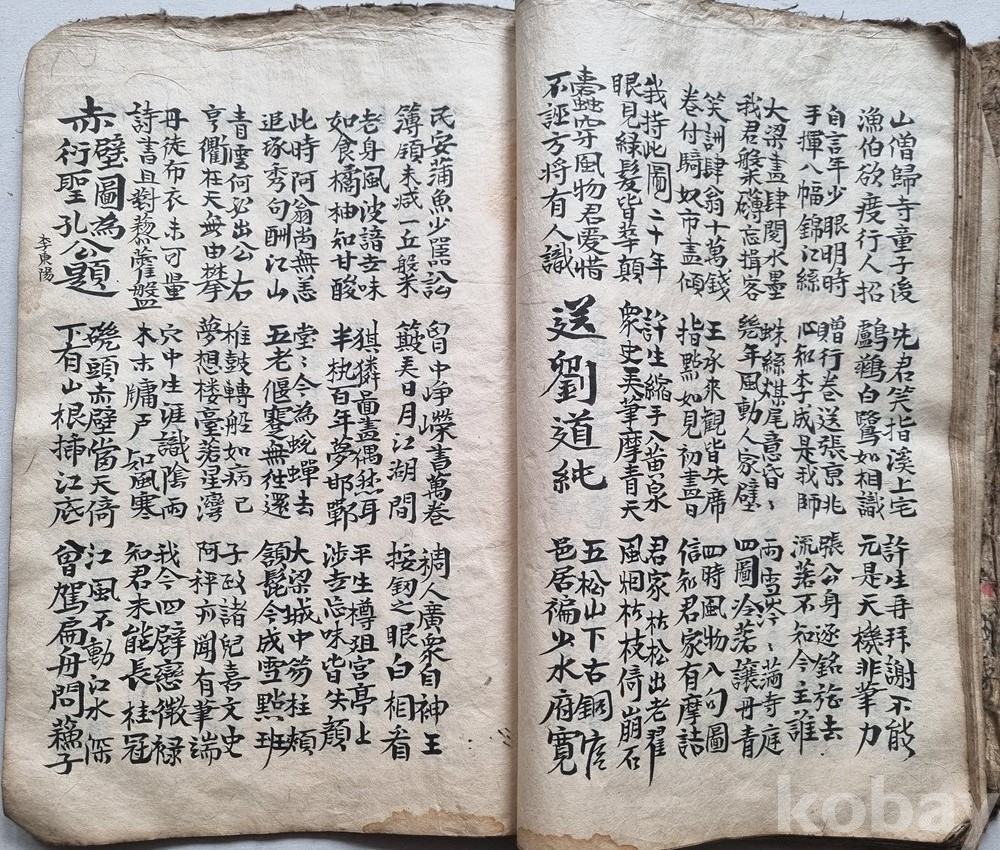 山僧歸寺童子後
漁伯欲渡行人招
先君笑指溪上宅
鸕鶿白鷺如相識
許生再拜謝不能
元是天機非筆力
自言年少眼明時
手揮八幅錦江絲
贈行卷送張京兆
心知李成是我師
張公身逐銘旌去
流落不知今主誰
大梁畫肆閱水墨
我君盤礴忘揖客
蛛絲煤尾意昏〻
幾年風動人家壁
雨雪涔〻滿寺庭
四圖冷落讓丹青
笑訓肆翁十萬錢
卷付騎奴市盡傾
王丞來觀皆失席
指點如見初畫日
四時風物入句圖
信知君家有摩詰
我持此圖二十年
眼見綠髮皆華顛
許生縮手入黃泉
衆史吴筆摩青天
君家枯松出老翟
風烟枯枝倚崩石
蠹穿風物君愛惜
不誣方將有人識
送劉道純
五松山下古銅官
邑居褊少水府寬
民安蒲魚少嚚訟
簿領未減一丘盤
胷中崢嶸書萬卷
簸弄日月江湖間
稠人廣衆自神王
按劍之眼白相看
老身風波諳世味
如食橘柚知甘酸
麒麟圖畫偶然耳
半枕百年夢邯鄲
平生樽俎宮亭上
涉世忘味皆失顏
此時阿翁尚無恙
追琢秀句酬江山
堂〻今為蛻蟬去
五老偃蹇無往還
大梁城中笏柱頰
頷髭今成雪點班
青雲何必出公右
亨衢在天無由攀
椎鼓轉船如病已
夢想樓臺落星灣
子政諸兒喜文史
阿秤亦聞有筆端
丹徒布衣未可量
詩書且對藜藿盤
穴中生涯識陰雨
木末牖户知風寒
我今四壁戀微祿
知君未能長挂冠
赤壁圖為
衍聖孔公題
李東陽
磯頭赤壁當天倚
下有山根插江底
江風不動江水深
曾駕扁舟問蘇子
kobay